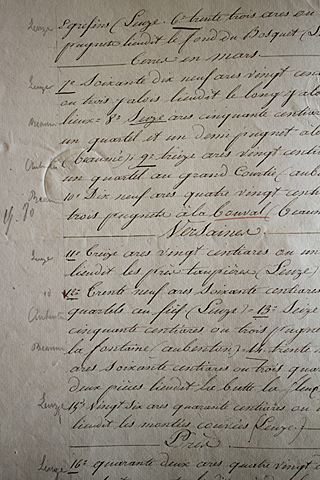 Leuze Segrefins (Leuze. 6° trente trois ares ou
pugnets lieudit le fond du Bosquet (
Terres en mars
Leuze 7° Soixante dix neuf ares vingt cent
ou trois jalois lieudit le long jalo
Beaumé lieux = 8° Seize ares cinquante centiar
un quartel et un demi pugnet
Aubenton (Beaumé) = 9° treize ares vingt centi
un quartel au grand Courtil (aube
Beaumé 10° Six neuf ares quatre vingt centi
trois pugnets à la Couval (Beaumé
Versaines
Leuze 11° Treize ares vingt centiares ou un
lieudit les prés taupières (Leuze)
id 12° Trente neuf ares soixante centiares
quartels au fief (Leuze) = 13° Seize
Aubenton cinquante centiares ou trois pugnet
Beaumé la fontaine (aubenton) = 14° trente
ares soixante centiares ou trois qua
deux pièces lieudit la butte la
Leuze 15° Vingt six ares quarante centiares ou
lieudit les montées (Leuze)
Prés
Leuze 16° quarante deux ares quatre vingt c